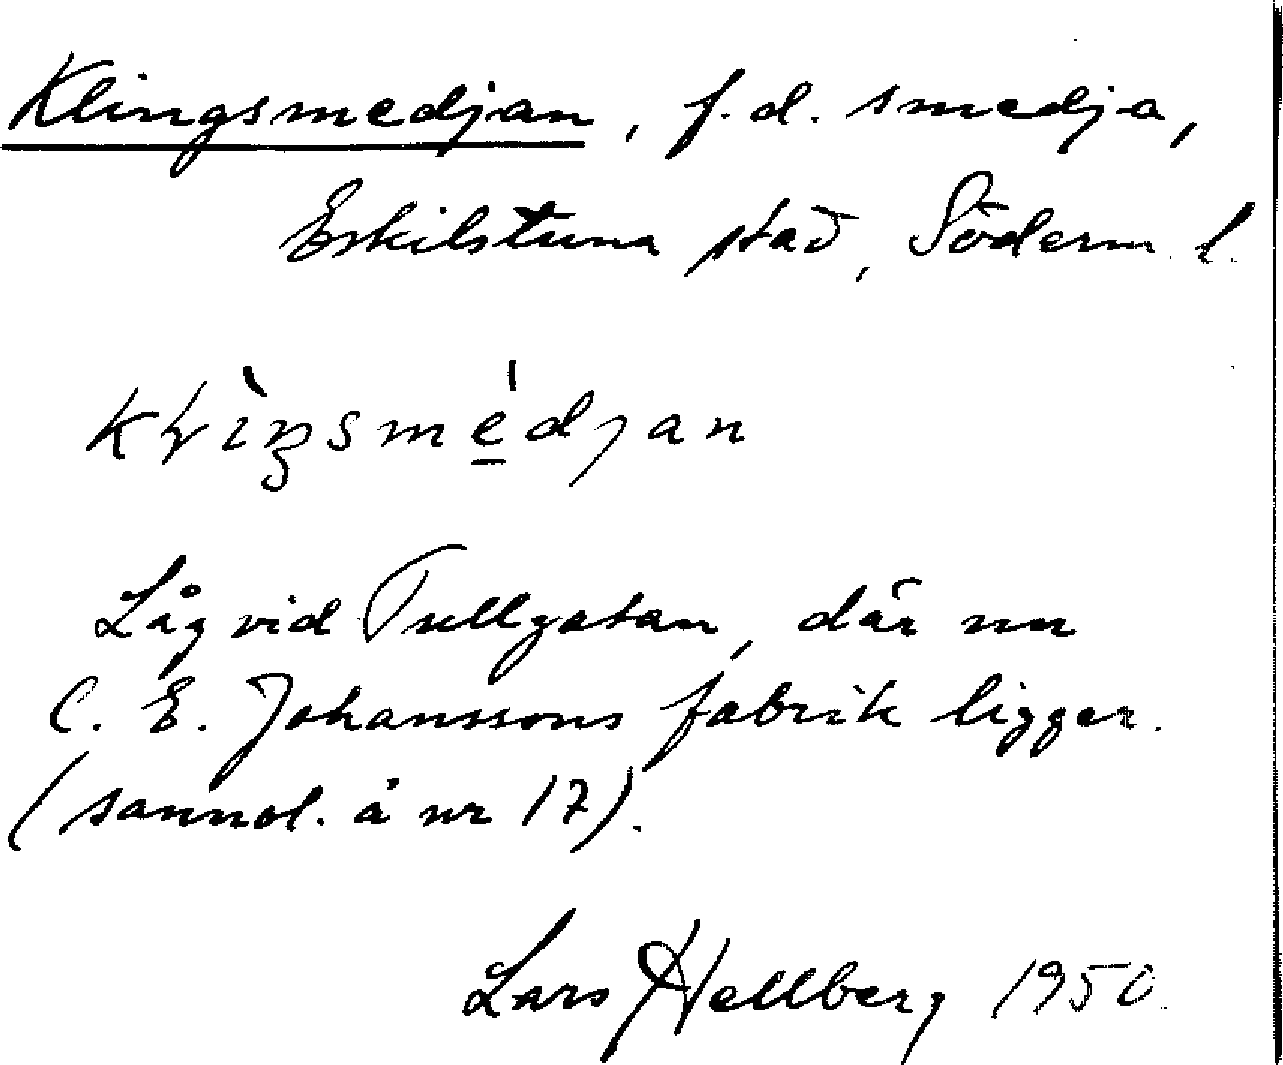 Klingsmedjan, f.d. smedja,
Eskilstuna stad, Söderm. l.
Låg vid Tullgatan, där nu
C. E. Johanssons fabrik ligger.
(sannol. å nr 17).
Lars Hellberg 1950.